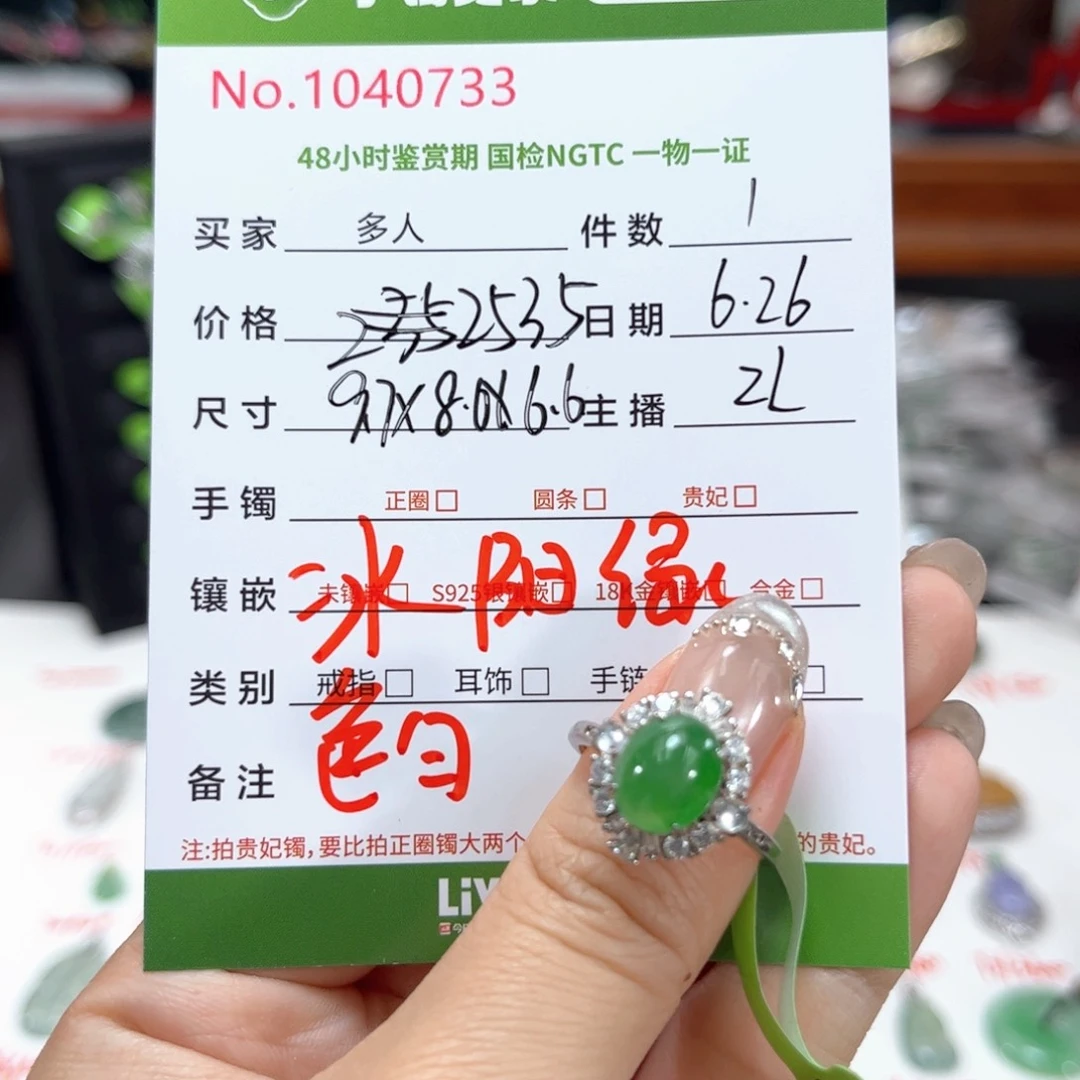 No.1040733
48小时鉴赏期 国检NGTC 一物一证
买家 多人 件数 1
价格 2535 日期 6.26
尺寸 9.7X8.0X6.6 主播 ZL
手镯 正圈□ 圆条□ 贵妃□
镶嵌 未镶嵌□ S925银镶嵌□ 18K金镶嵌□ 合金□
冰阳绿
类别 戒指□ 耳饰□ 手链 □
色匀
备注
注:拍贵妃镯,要比拍正圈镯大两个 的贵妃。